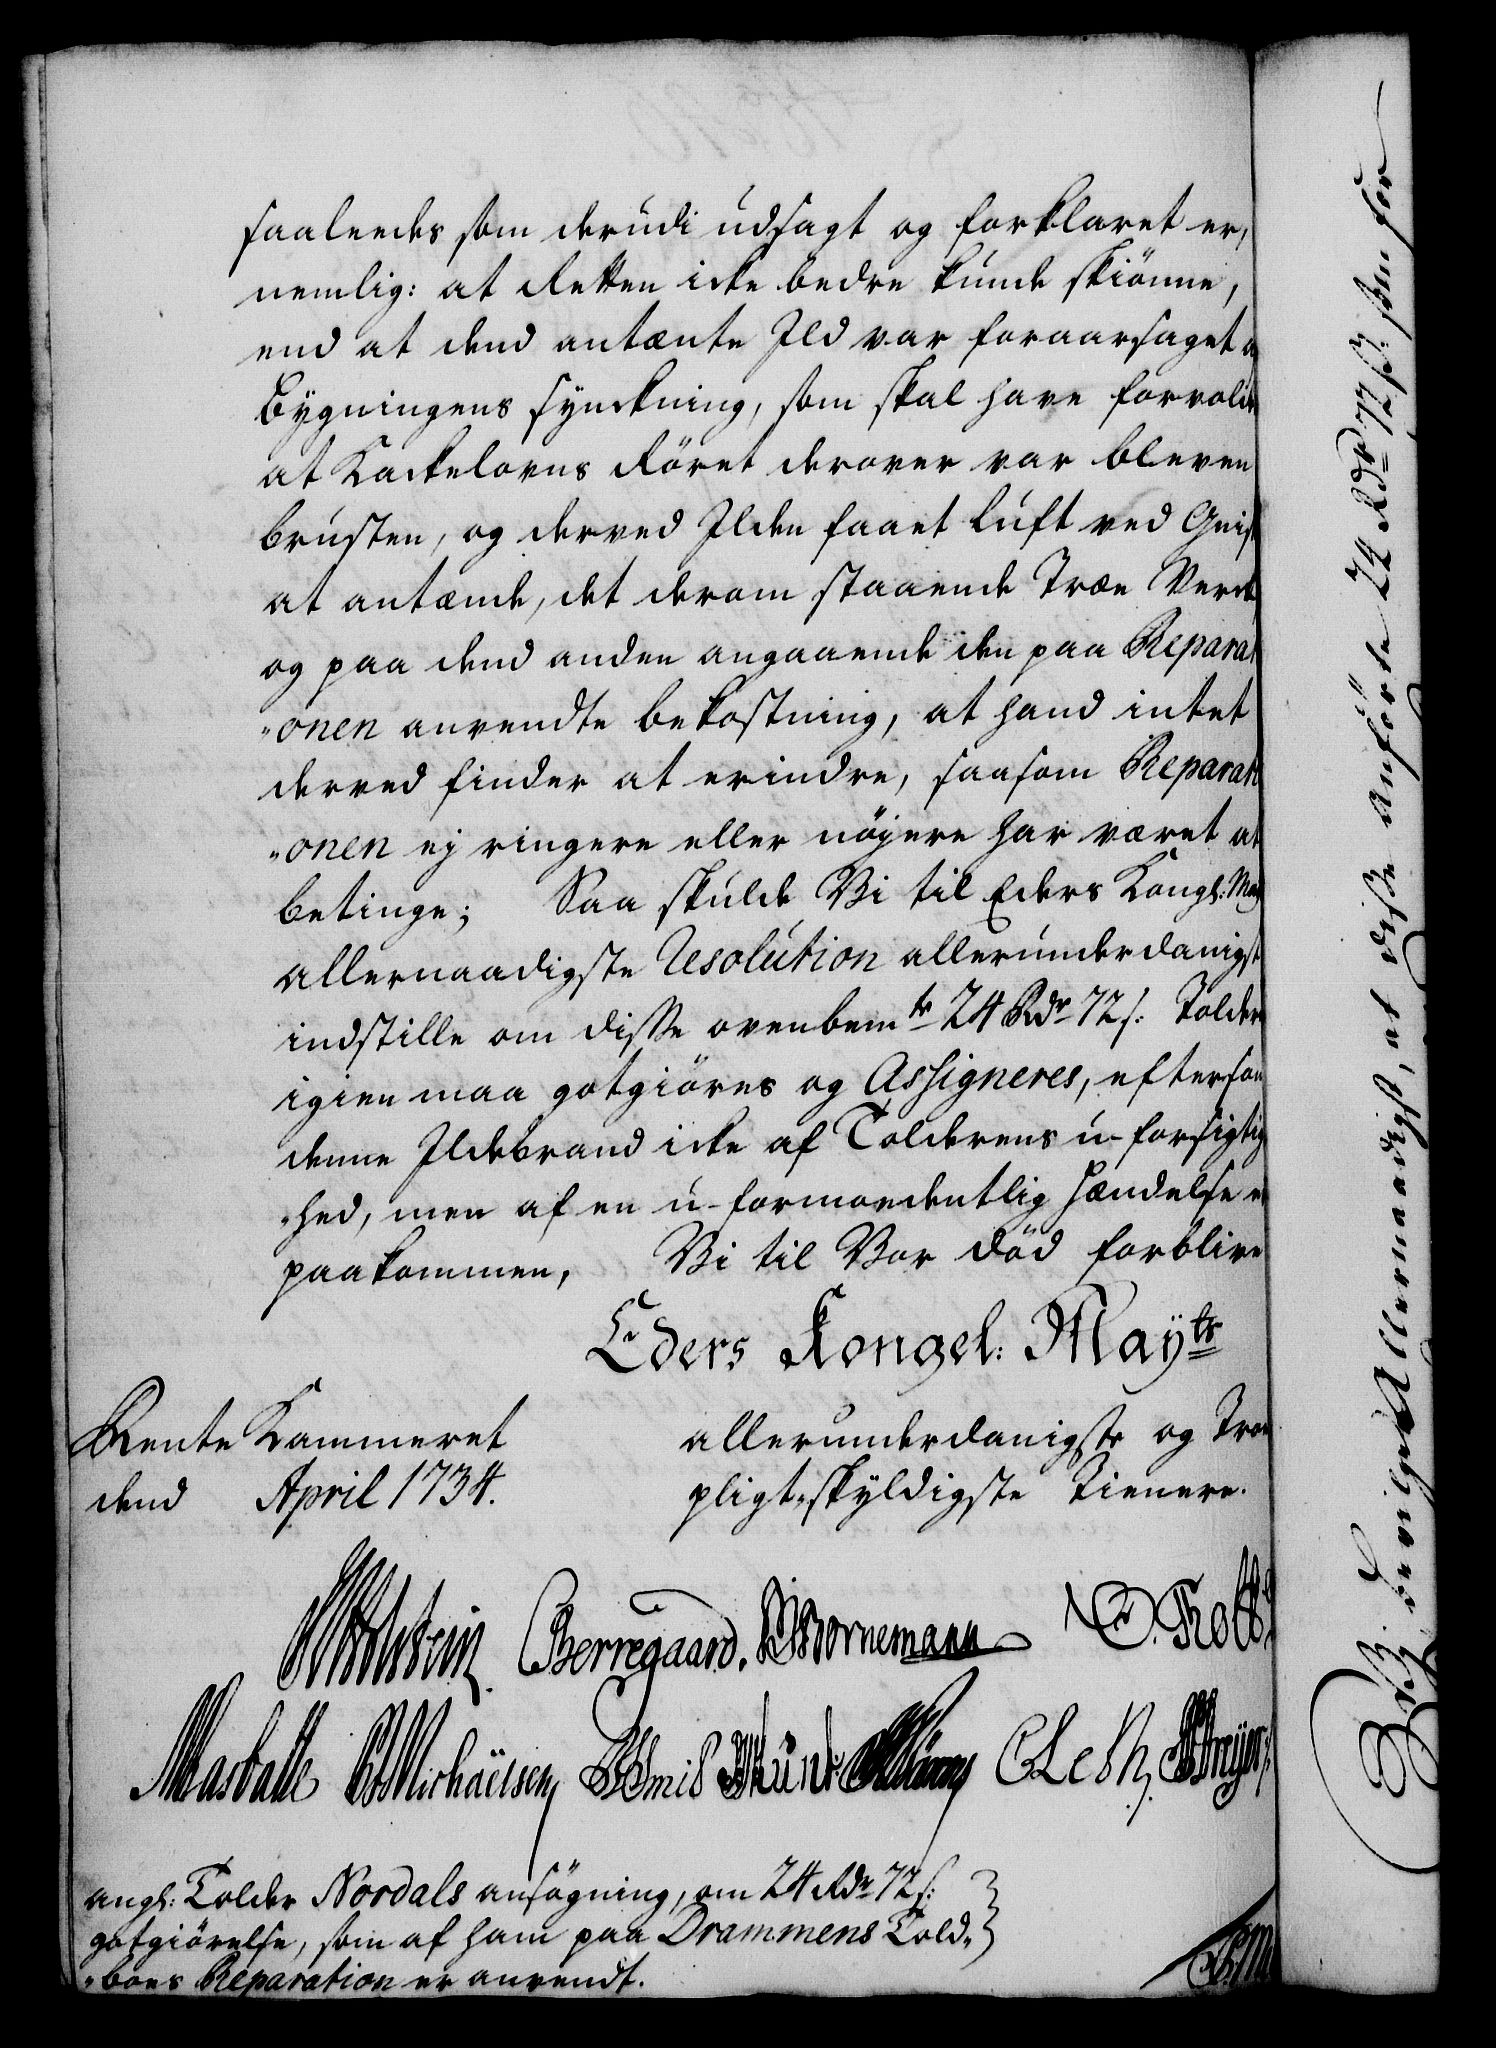 saaleedes som derudi udsagt og forklaret er,
nemlig: at Retten icke bedre kunde skiönne,
end at dend antænte Ild var foraarsaget a
Bygningens synckning, som skal have forvoldt
at Kackelovns Röret derover var bleven
brusten, og derved Ilden faaet Luft ved Gnist
at antænde, det derom staaende Træe Verck
og paa dend anden angaaende den paa Reparat
"onen anvendte bekostning, at hand intet
derved finder at erindre, saasom Reparati
"onen ej ringere eller nöyere har været at
betinge; Saa skulde Vi til Eders Kongl: May
allernaadigste Resolution allerunderdanigst
indstille om disse ovenbemte 24 Rdr 72 s: Tolder
igien maa gotgiöres og Assigneres, eftersom
denne Ildebrand icke af Tolderens u-forsigtig
"hed, men af en u-formoedentlig Hændelse er
paakommen, Vi til Vor Död forblive
Eders Kongel: Mayts
Rente Kammeret allerunderdanigste og Troe
dend April 1734. pligt-skyldigste Tienere.
Holstein Berregaard. Bornemann O. Thott
Masballe Michaëlsen Smid Munk CLeth, Dreyer
angl: Tolder Nordals ansögning, om 24 Rdr 72 s:
gotgiörelse, som af ham paa Drammens Told-
"boes Reparation er anvendt.
Vi bevilge Allernaadigst, at disse anförte 24 Rdr 72 s: som for